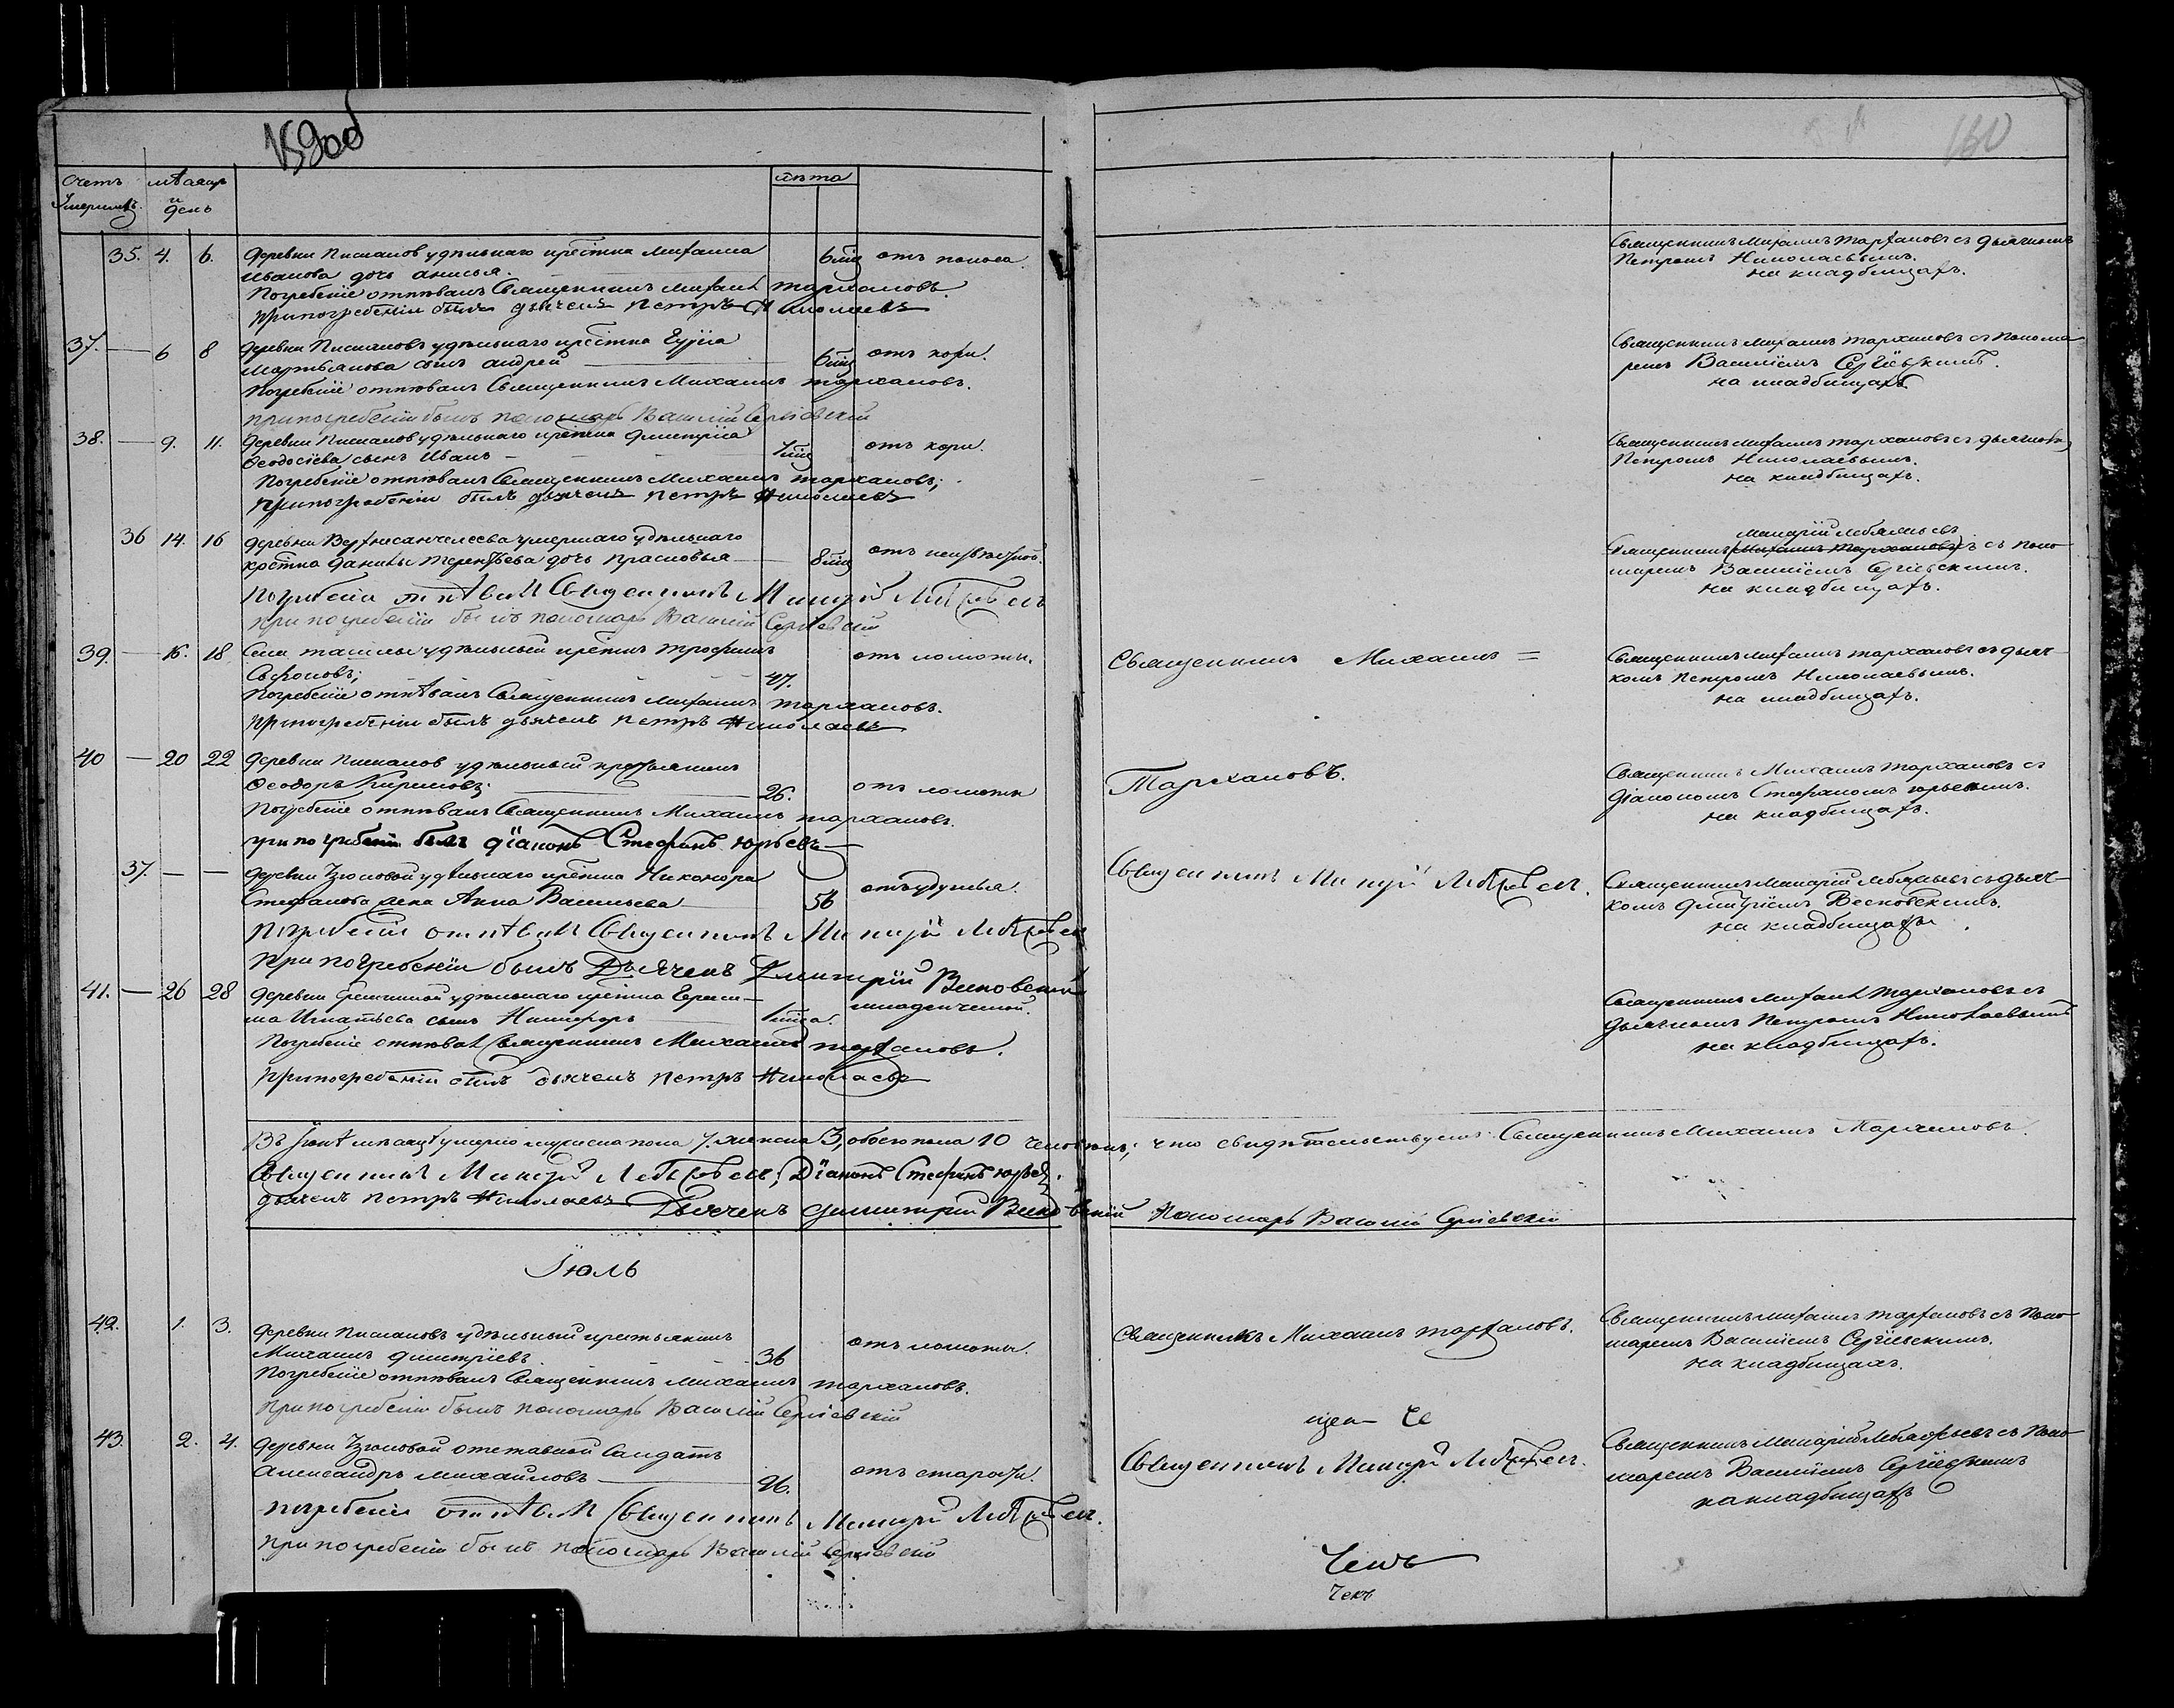 160
Счетъ умершихъ. мѣсяцъ и день лѣта
35. 4. 6. Деревни Пискаловъ удѣльнаго крестьна Михаила
Иванова дочь Анисья. 6 мц отъ поноса.
Погребеніе отпѣвалъ Священникъ Михаилъ Тархановъ.
При погребеніи былъ дьячекъ Петръ Николаевъ
Священникъ Михаилъ Тархановъ съ дьячкомъ
Петромъ Николаевымъ.
на кладбищахъ.
37. — 6 8 Деревни Пискаловъ удѣльнаго крестьна
Мартьянова сынъ Андрей 6 мц отъ кори.
Погребеніе отпѣвалъ Священникъ Михаилъ Тархановъ.
При погребеніи былъ пономарь Василій Сергіевскій
Священникъ Михаилъ Тархановъ съ понома
ремъ Василіемъ Сергіевскимъ.
на кладбищахъ
38. — 9. 11. Деревни Пискаловъ удѣльнаго крестьна Димитрія
Ѳеодосіева сынъ Иванъ — отъ кори.
Погребеніе отпѣвалъ Священникъ Михаилъ Тархановъ;
При погребеніи былъ дьячекъ Петръ Николаевъ
Священникъ Михаилъ Тархановъ съ дьячкомъ
Петромъ Николаевымъ.
на кладбищахъ.
36 14. 16 Деревни умершаго удѣльнаго
крестьна Данилы Терентьева дочь Прасковья 8 мц отъ неизвѣстной.
Погребеніе отпѣвалъ Священникъ Макарій Лебедевъ
При погребеніи былъ пономарь Василій Сергіевскій
Макарій Лебедевъ
Священникъ (Михаилъ Тархановъ) съ поно
маремъ Василіемъ Сергіевскимъ.
на кладбищахъ.
39. — 16. 18 Села Ташлы удѣльный крестьнъ Трофимъ
Сафоновъ; 47. отъ ломоты.
Погребеніе отпѣвалъ Священникъ Михаилъ Тархановъ.
При погребеніи былъ дьячекъ Петръ Николаевъ
Священникъ Михаилъ =
Священникъ Михаилъ Тархановъ съ дьяч-
комъ Петромъ Николаевымъ.
на кладбищахъ.
40 — 20 22 Деревни Пискаловъ удѣльный крестьянинъ
Ѳеодоръ Кириловъ. 26. отъ ломоты
Погребеніе отпѣвалъ Священникъ Михаилъ Тархановъ.
При погребеніи былъ діаконъ Стефанъ Юрьевъ
Тархановъ.
Священникъ Михаилъ Тархановъ съ
діакономъ Стефаномъ Юрьевымъ.
на кладбищахъ.
37. — — Деревни Узюковой удѣльнаго крестьна Никонора
Стефанова жена Анна Васильева 56 отъ удушья.
Погребеніе отпѣвалъ Священникъ Макарій Лебедевъ
При погребеніи былъ Дьячекъ Димитрій
Священникъ Макарій Лебедевъ.
Священникъ Макарій Лебедевъ съ дьяч-
комъ Дмитріемъ
на кладбищахъ.
41. — 26 28 Деревни удѣльнаго крестьна Гераси-
ма Игнатьева сынъ Никифоръ младенческой.
Погребеніе отпѣвалъ Священникъ Михаилъ Тархановъ.
При погребеніи былъ дьячекъ Петръ Николаевъ
Священникъ Михаилъ Тархановъ съ
дьячкомъ Петромъ Николаевымъ
на кладбищахъ.
Въ Іюнѣ мѣсяцѣ умерло мужеска пола 7. женска 3, обоего пола 10 человѣкъ; что свидѣтельствуемъ: Священникъ Михаилъ Тархановъ.
Священникъ Макарій Лебедевъ; Діаконъ Стефанъ Юрьевъ.
дьячекъ Петръ Николаевъ Дьячекъ Димитрій Пономарь Василій Сергіевскій
Іюль
42. 1. 3. Деревни Пискаловъ удѣльный крестьянинъ
Михаилъ Димитріевъ. 36 отъ ломоты.
Погребеніе отпѣвалъ Священникъ Михаилъ Тархановъ.
При погребеніи былъ пономарь Василій Сергіевскій
Священникъ Михаилъ Тархановъ.
Священникъ Михаилъ Тархановъ съ поно
маремъ Василіемъ Сергіевскимъ.
на кладбищахъ.
43. 2. 4. Деревни Узюковой отставной Солдатъ
Александръ Михайловъ 96. отъ старости.
Погребеніе отпѣвалъ Священникъ Макарій Лебедевъ.
При погребеніи былъ пономарь Василій Сергіевскій
Священникъ Макарій Лебедевъ.
Священникъ Макарій Лебедевъ съ поно
маремъ Василіемъ Сергіевскимъ
на кладбищахъ